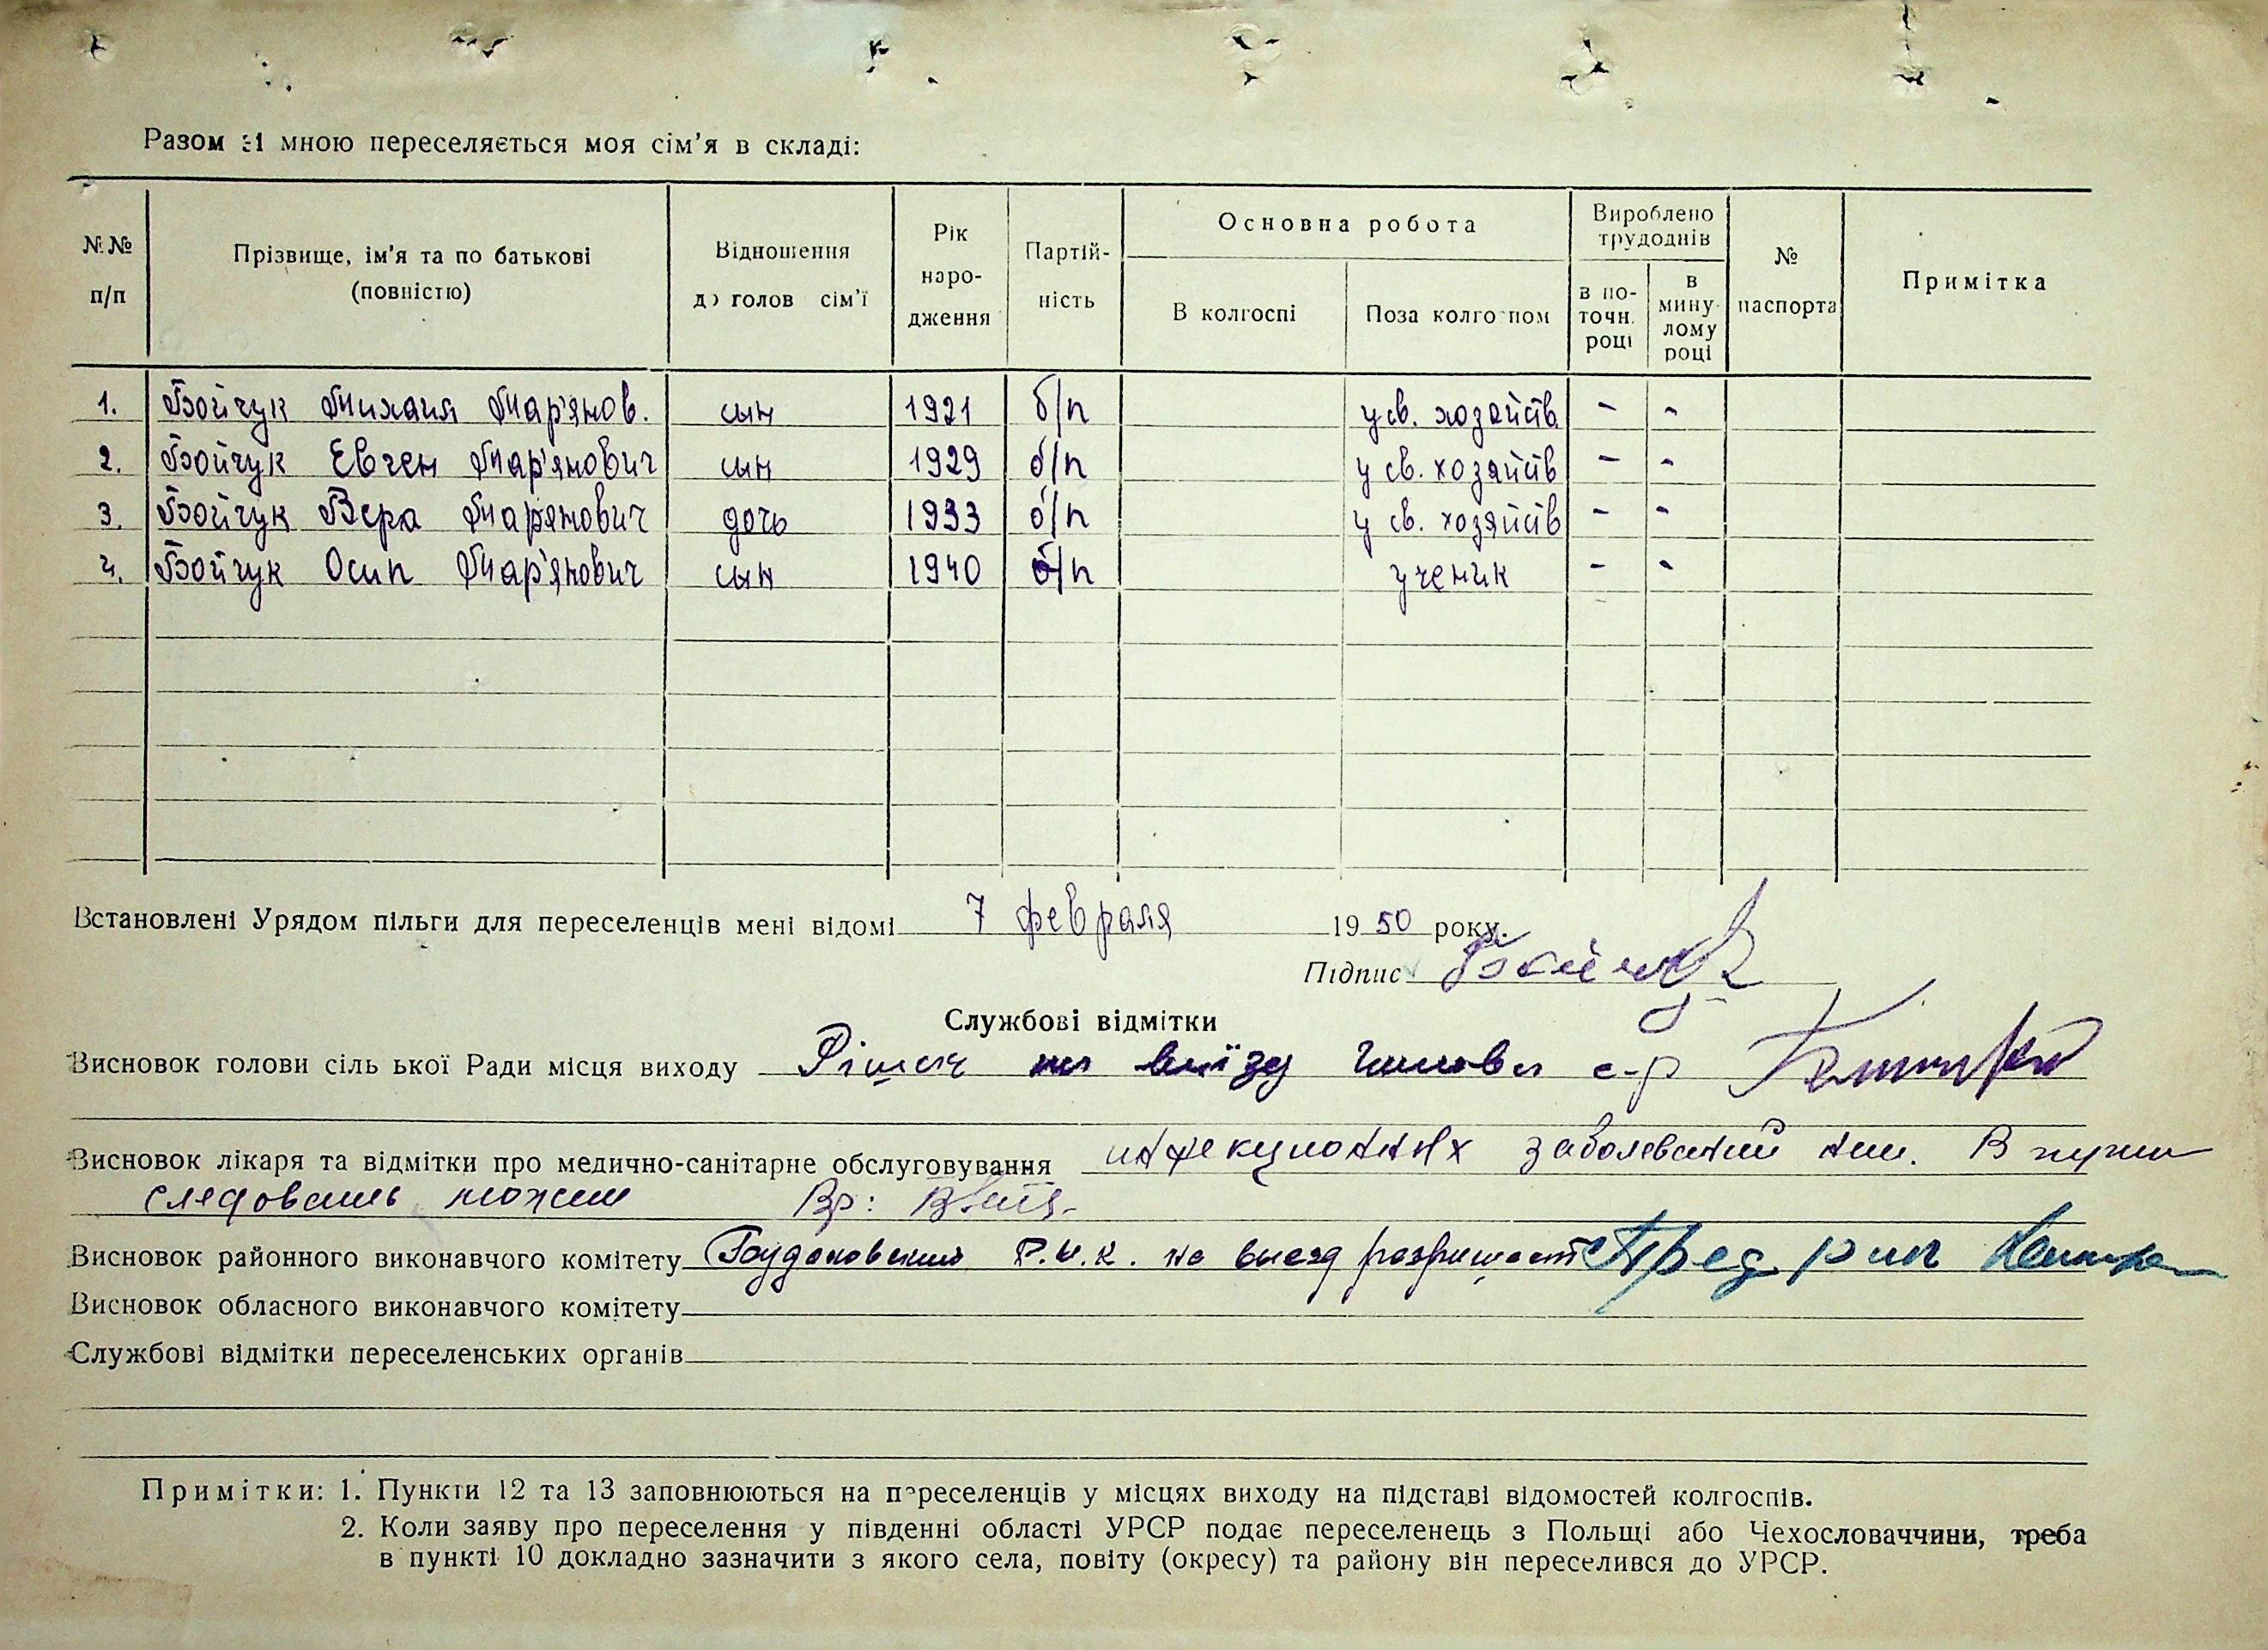 Разом зі мною переселяється моя сім’я в складі:
№№ п/п | Прізвище, ім’я та по батькові (повністю) | Відношення до голов сім’ї | Рік народження | Партійність | Основна робота | Вироблено трудоднів | № паспорта | Примітка
В колгоспі | Поза колго пом | в поточн. році | в минулому році
1. | Бойчук Михаил Мар'янов. | сын | 1921 | б/п | у св. хозяйств | - | -
2. | Бойчук Евген Мар'янович | сын | 1929 | б/п | у св. хозяйств | - | -
3. | Бойчук Вера Мар'янович | дочь | 1933 | б/п | у св. хозяйств | - | -
4. | Бойчук Осип Мар'янович | сын | 1940 | б/п | ученик | - | -
Встановлені Урядом пільги для переселенців мені відомі 7 февраля 1950 року.
Підпис Бойчук
Службові відмітки
Висновок голови сіль ької Ради місця виходу на виїзд Голова с-р
Висновок лікаря та відмітки про медично-санітарне обслуговування инфекционных заболеваний нет. В пути
следовать может Вр:
Висновок районного виконавчого комітету Р.И.К. на выезд Пред рик
Висновок обласного виконавчого комітету
Службові відмітки переселенських органів
Примітки: 1. Пункти 12 та 13 заповнюються на переселенців у місцях виходу на підставі відомостей колгоспів.
2. Коли заяву про переселення у південні області УРСР подає переселенець з Польщі або Чехословаччини, треба
в пункті 10 докладно зазначити з якого села, повіту (окресу) та району він переселився до УРСР.